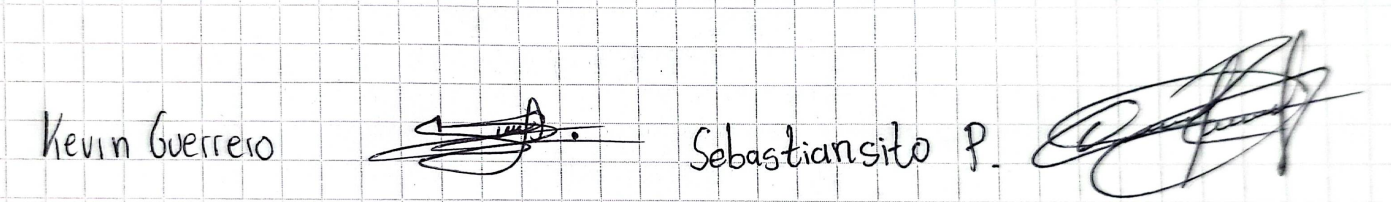 Kevin Guerrero Sebastiansito P.